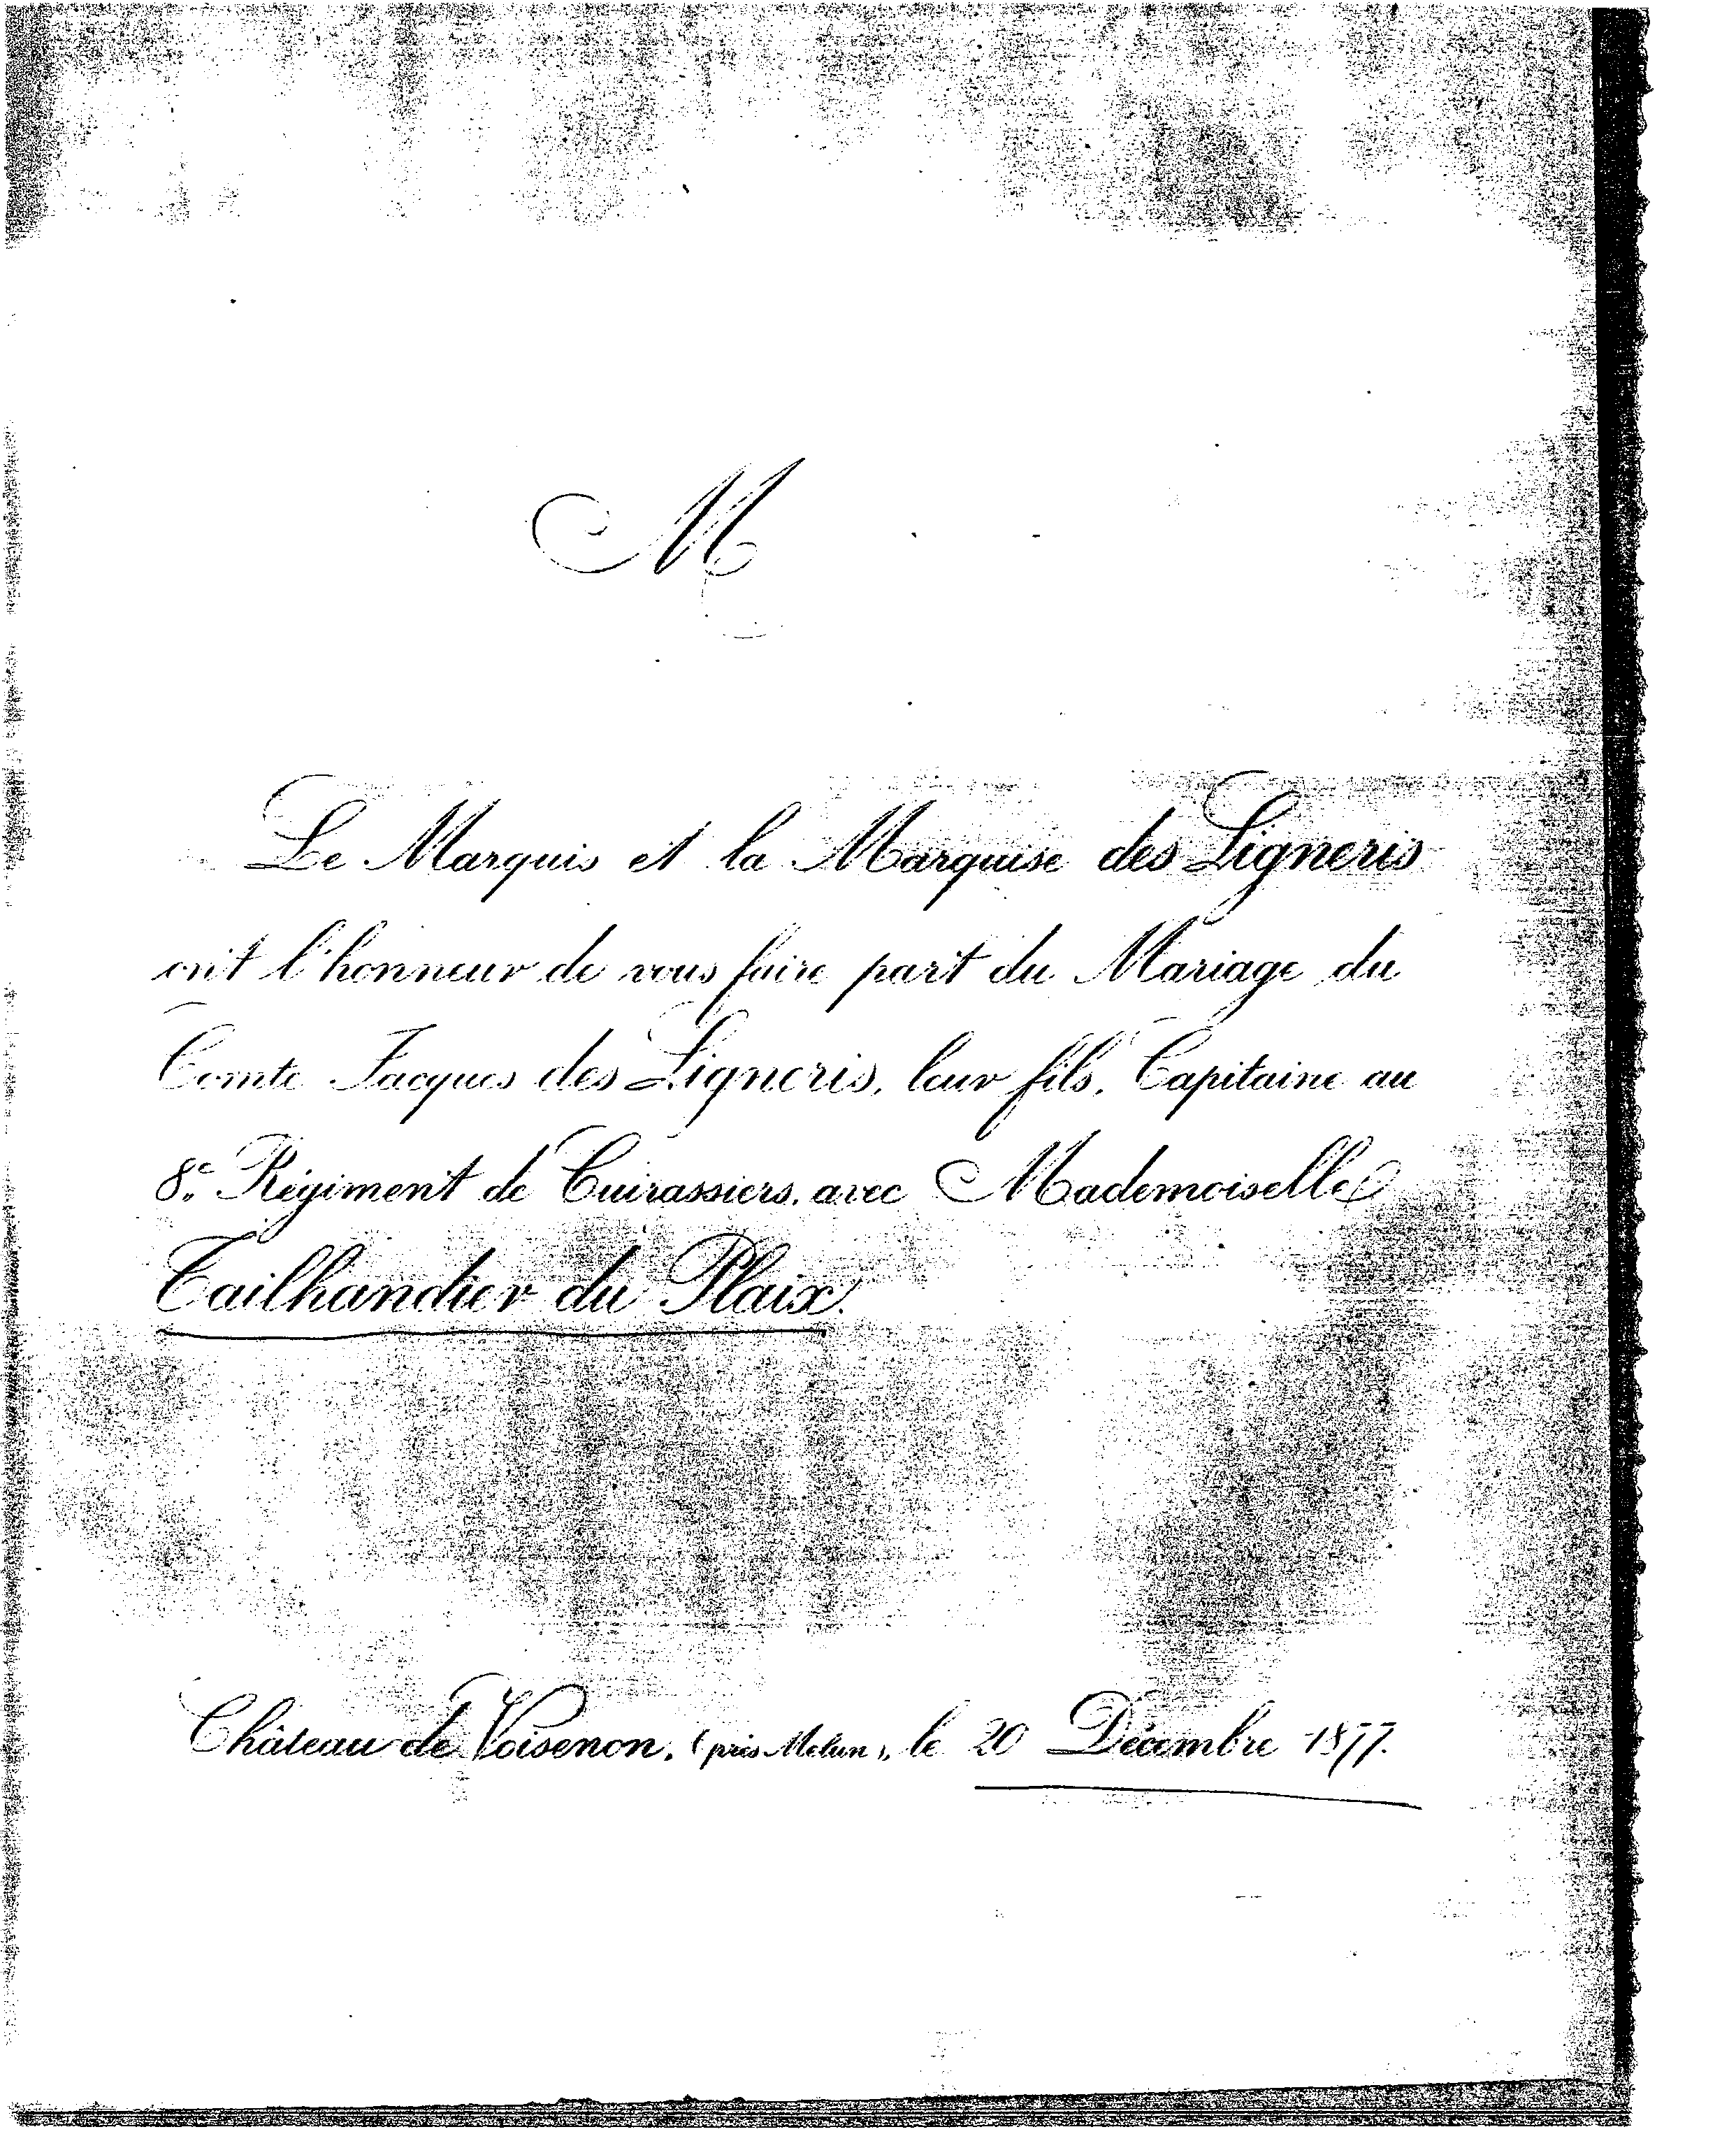 M
Le Marquis et la Marquise des Ligneris
ont l'honneur de vous faire part du Mariage du
Comte Jacques des Ligneris, leur fils, Capitaine au
8e Régiment de Cuirassiers, avec Mademoiselle
Tailhandier du Plaix.
Château de Voisenon, (près Melun), le 20 Décembre 1877.